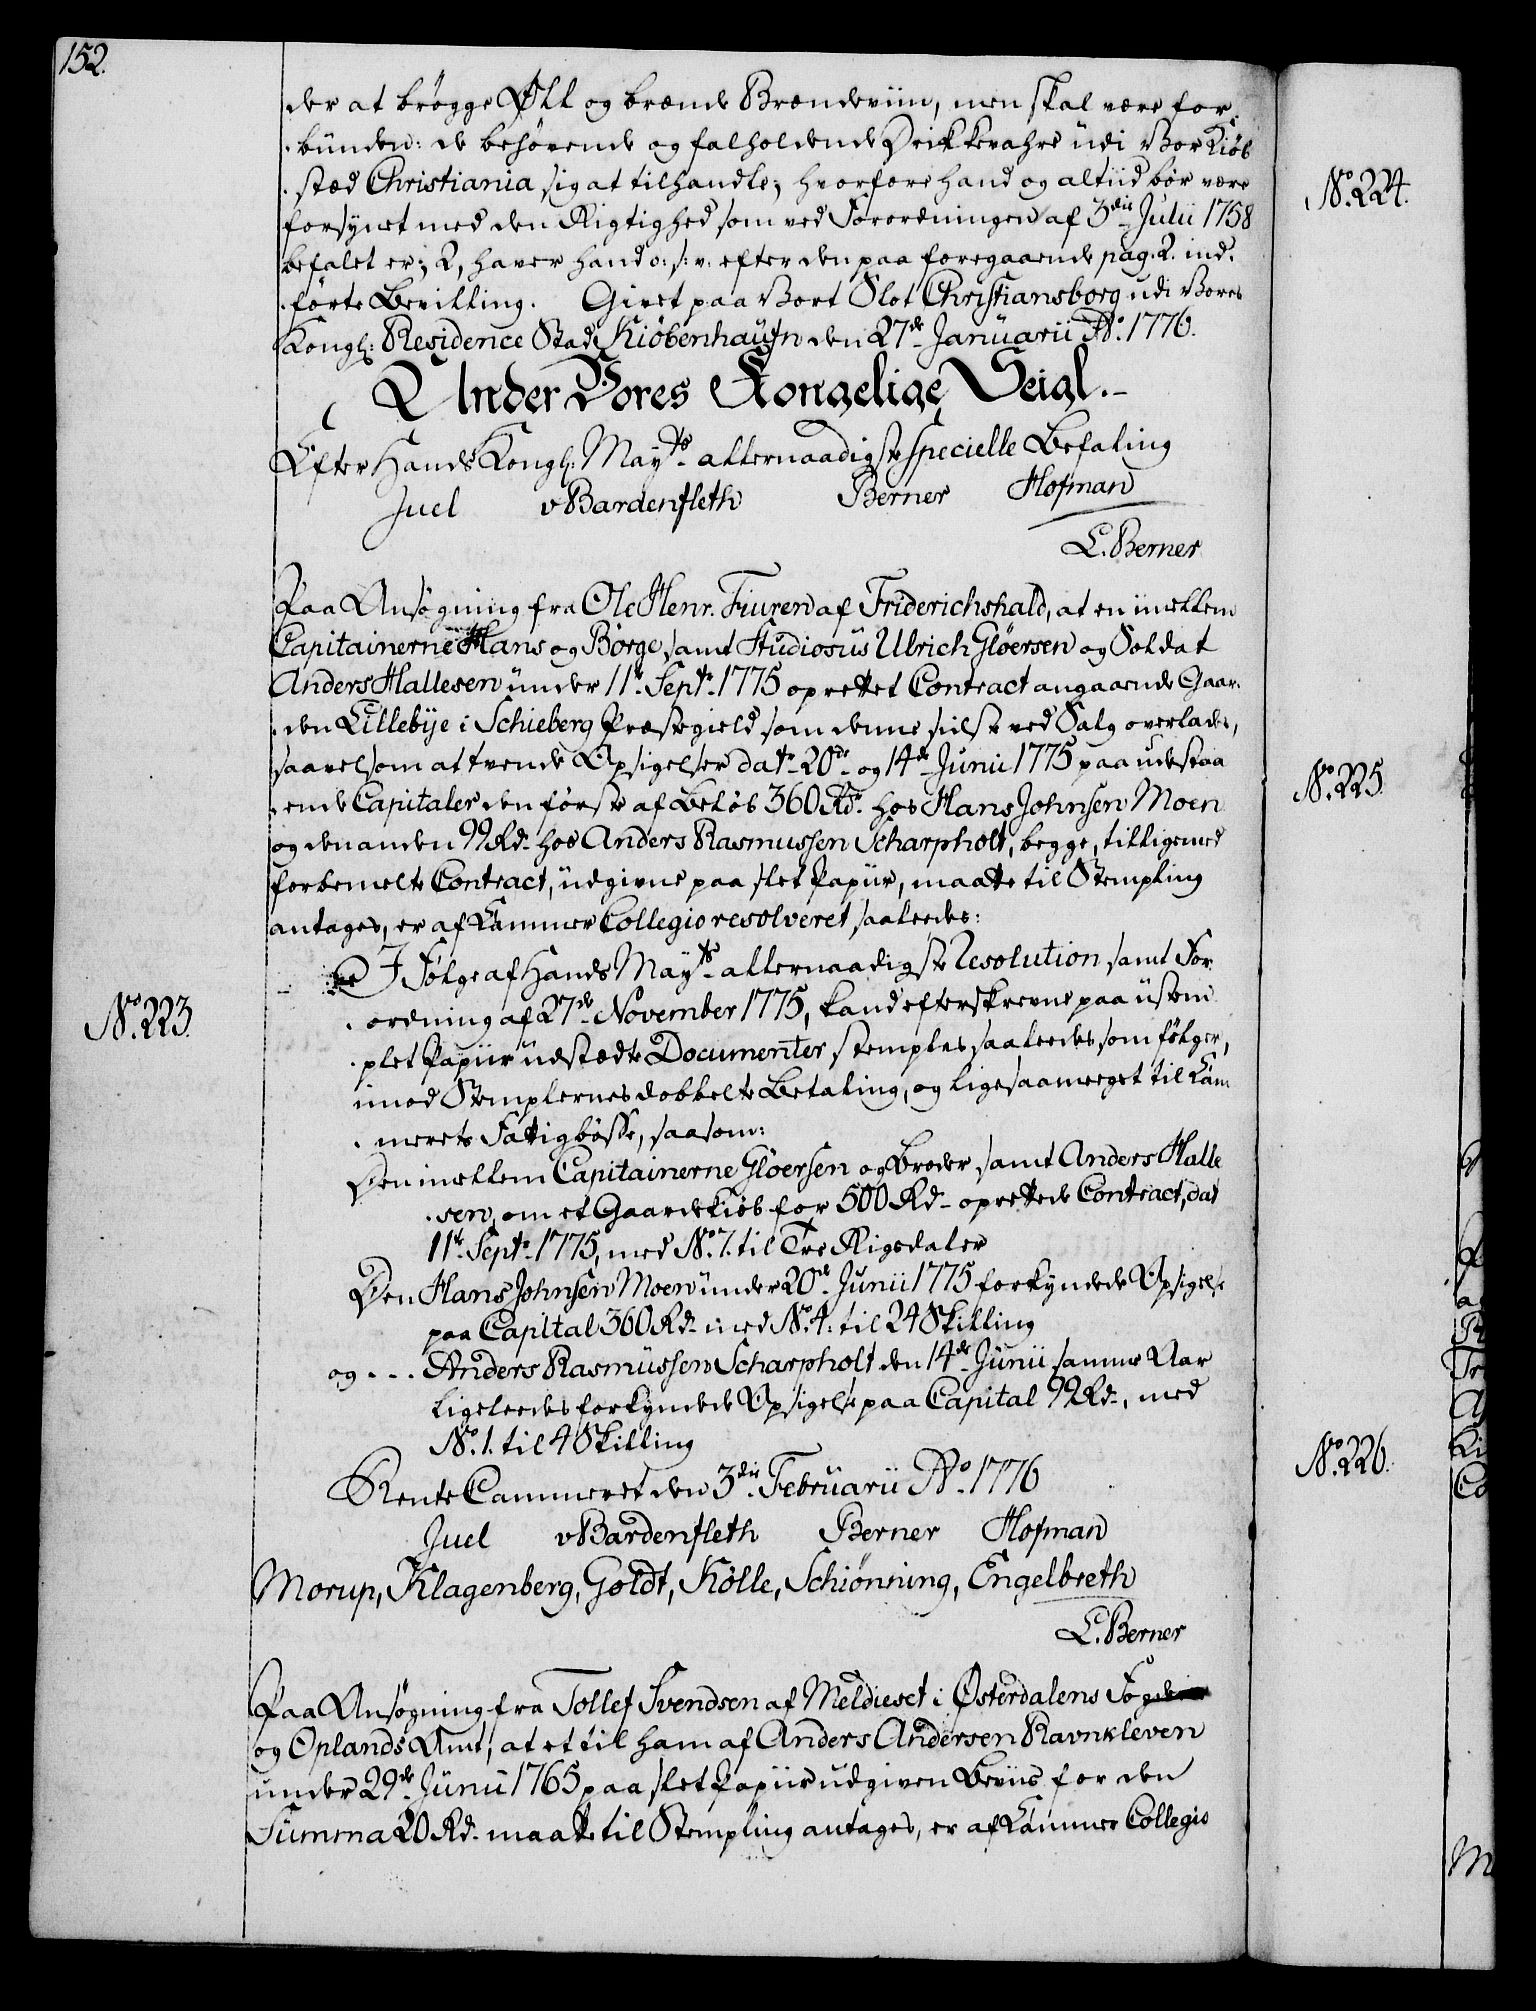 152.
der at brøgge Øll og brænde Brændeviin, men skal være for¬
bunden: de behøvende og falholdende Drikkevahre udi Vor Kiøb
stæd Christiania sig at tilhandle; hvorfore hand og altiid bør være
forsynet med den Rigtighed som ved Forordningen af 3die Julii 1758
befalet er; 2, haver hand o: s: v: efter den paa foregaaende pag. 2. ind¬
førte Bevilling. Givet paa Vort Slot Christiansborg udi Vores
Kongl: Residence Stad Kiøbenhaufn den 27de Januarii Ao. 1776.
Under Vores Kongelige Seigl.
Efter Hands Kongl: Mayts. allernaadigste specielle Befaling
Juel vBardenfleth Berner Hofman
L. Berner
Paa Ansøgning fra Ole Henr. Fiuren af Friderichshald, at en imellem
Capitainerne Hans og Børge, samt Studiosus Ulrich Gløersen og Soldat
Anders Hallesen under 11te Septr. 1775 oprettet Contract angaaende Gaar¬
den Lillebÿe i Schieberg Præstegield som denne sidste ved Salg overlades,
saavelsom at tvende Opsigelser dat. 20de og 14de Junii 1775 paa udestaa
ende Capitaler den første af Beløb 360 Rdr. hos Hans Johnsen Moen
og den anden 99 Rd. hos Anders Rasmussen Scharpholt, begge, tilligemed
forbemelte Contract, udgivne paa slet Papiir, maatte til Stempling
antages, er af Kammer Collegio resolveret saaledes:
No. 223.
I Følge af Hands Mayts. allernaadigste Resolution samt For¬
ordning af 27de November 1775, kand efterskrevne paa ustem¬
plet Papiir udstædte Documenter stemples saaledes som følger,
imod Stemplernes dobbelte Betaling, og ligesaameeget til Kam
merets Fattigbøsse, saasom:
Den imellem Capitainerne Gløersen og Broder samt Anders Halle
sen, om et Gaardekiøb for 500 Rd. oprettede Contract, dat
11te Septr. 1775, med No. 7. til Tre Rigsdaler
Den Hans Johnsen Moen under 20de Junii 1775 forkyndede Opsigelse
paa Capital 360 Rd. med No. 4. til 24 Skilling
og . . . Anders Rasmussen Scharpholt den 14de Junii samme Aar
ligeledes forkyndede Opsigelse paa Capital 99 Rd., med
No. 1. til 4 Skilling
Rente Cammeret den 3die Februarii Ao. 1776
Juel vBardenfleth Berner Hofman
Morup, Klagenberg, Goldt, Kølle, Schiønning, Engelbreth
L. Berner
Paa Ansøgning fra Tollef Svendsen af Meldieset i Østerdalens Fogderie
og Oplands Amt, at et til ham af Anders Andersen Ravnkleven
under 29de Junii 1765 paa slet Papiir udgiven Beviis for den
Summa 20 Rd. maatte til Stempling antages, er af Kammer Collegio
No. 224.
No. 225.
No. 226.